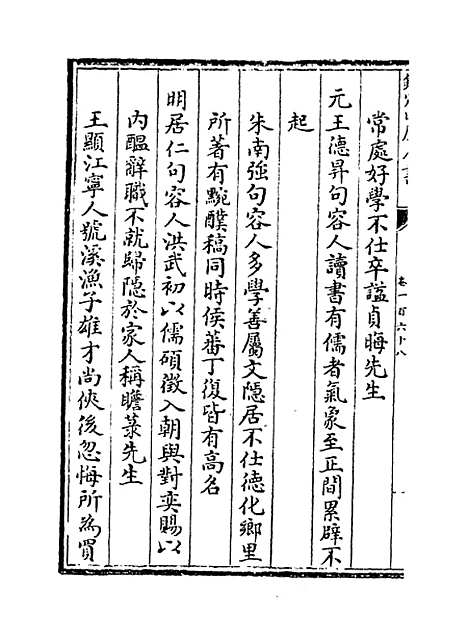 卷一百六十八
常處好學不仕卒諡貞晦先生
元王德昇句容人讀書有儒者氣象至正間累辟不
起
朱南強句容人多學善屬文隱居不仕德化鄉里
所著有剜醭稿同時侯蕃丁復皆有高名
明居仁句容人洪武初以儒碩徵入朝與對奕賜以
内醖辭職不就歸隱於家人稱瞻菉先生
王顯江寧人號溪漁子雄才尚俠後忽悔所為買